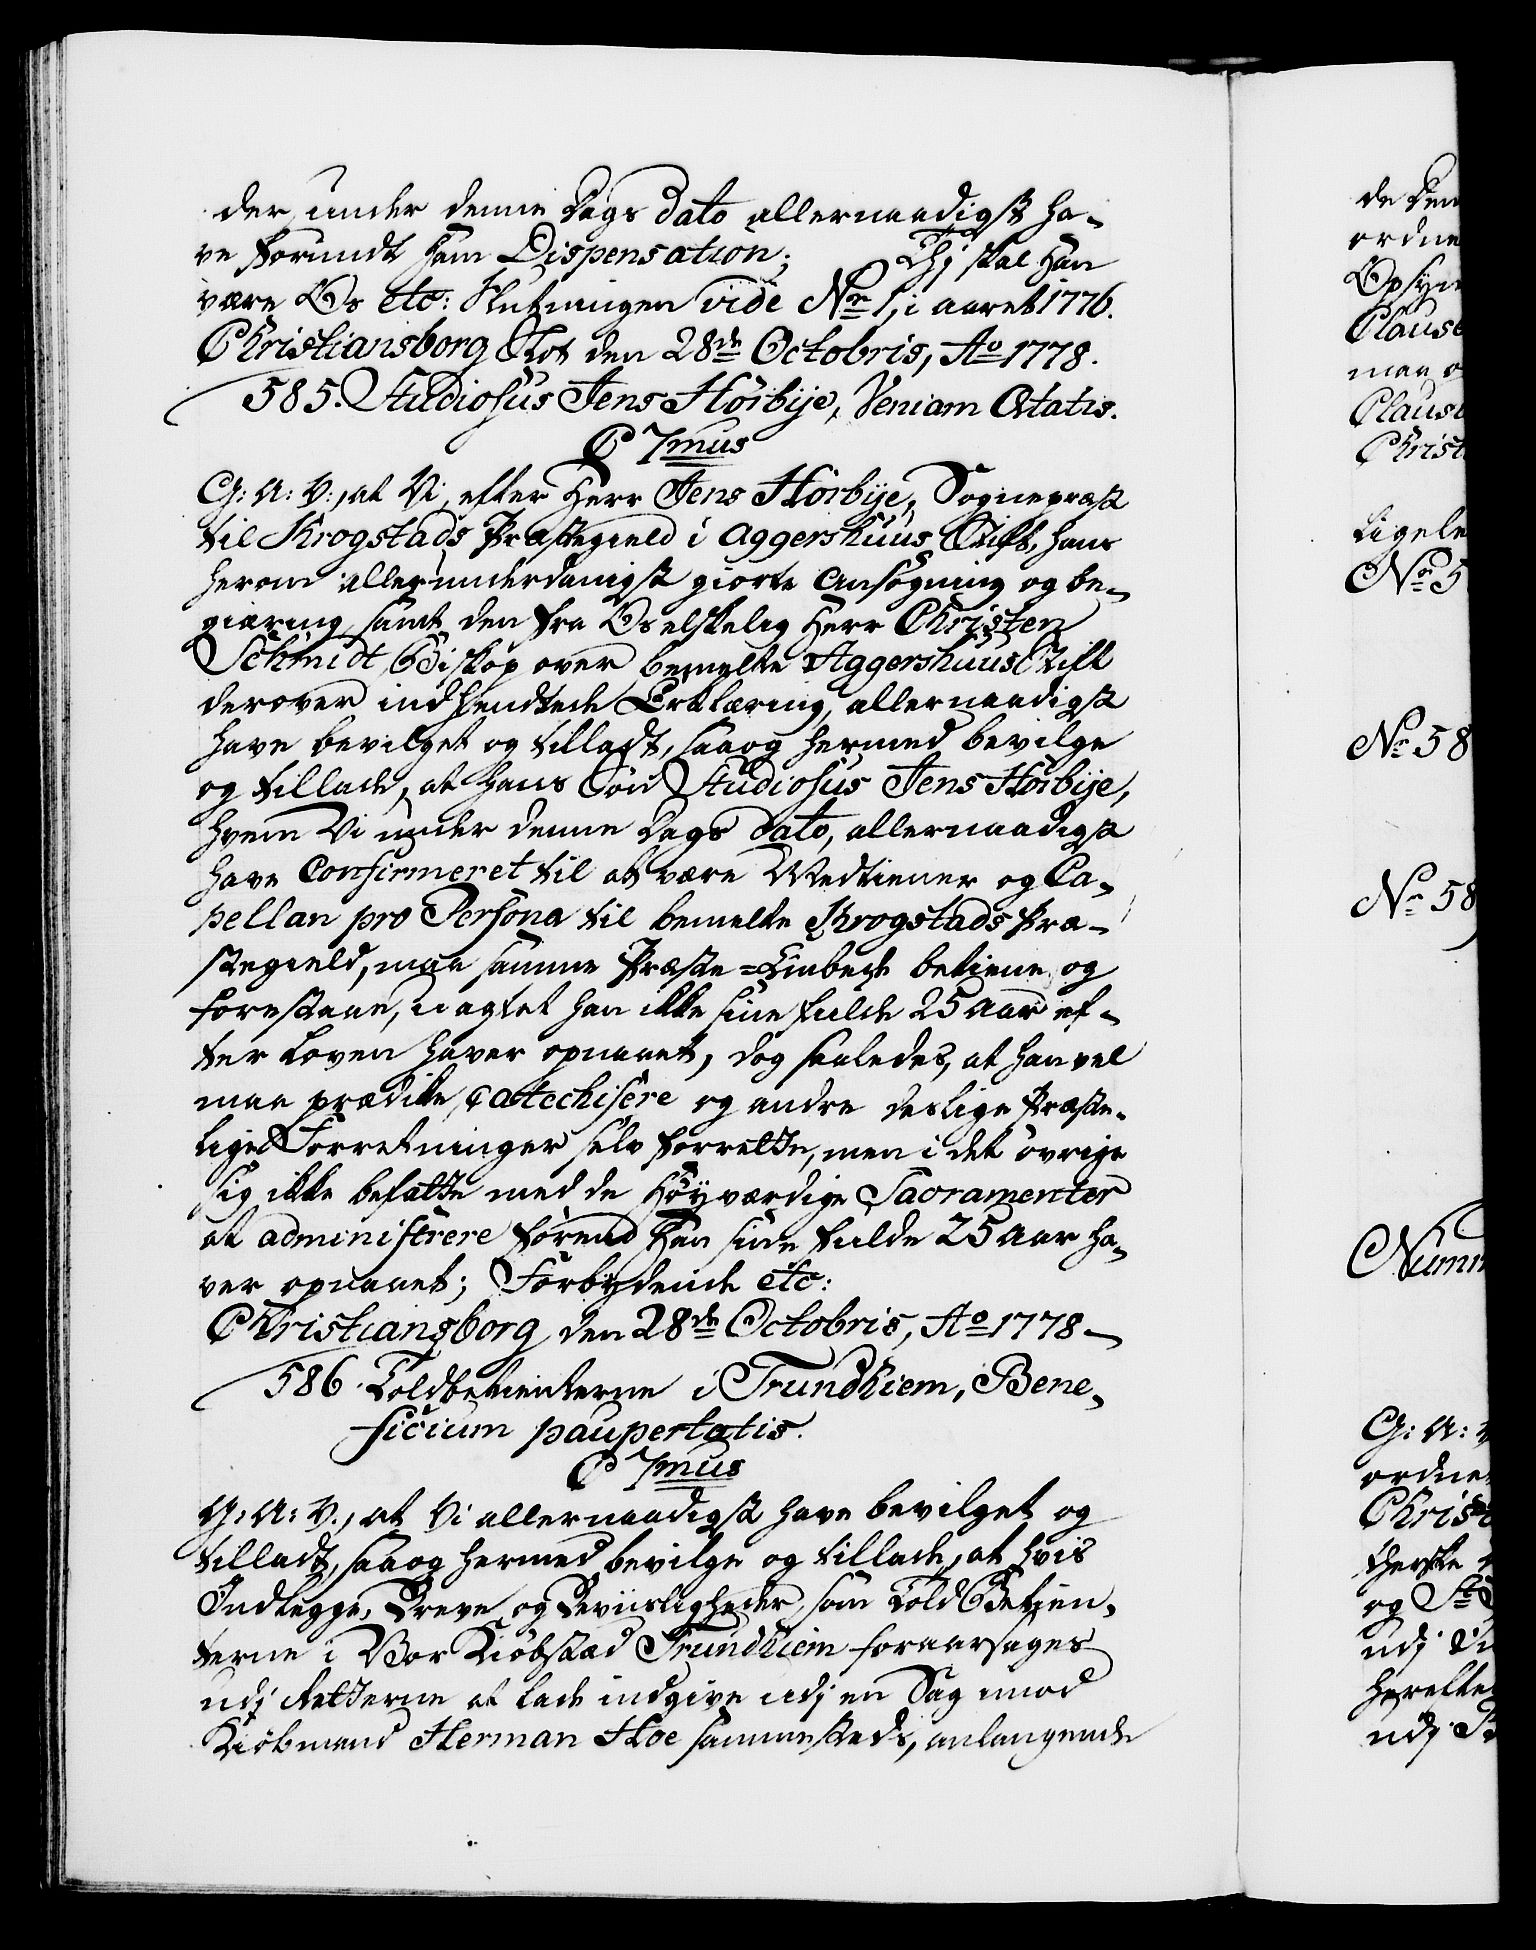 der under denne Dags Dato allernaadigst ha-
ve forundt ham Dispensation; Thj skal Han
være Os etc: Slutningen vide No 1, i aaret 1776.
Christiansborg Slot den 28de Octobris, Ao 1778.
585. Studiosus Jens Hörbije, Veniam Ætatis.
C 7mus
G: A: V:, at Vi, efter Herr Jens Hörbije, Sognepræst
til Krogstads Præstegield i Aggershuus Stift, hans
herom allerunderdanigst giorte Ansögning og be-
giæring, samt den fra Os elskelig Herr Christen
Schmidt, Biskop over bemelte Aggershuus Stift
derover indhendtede Erklæring, allernaadigst
have bevilget og tilladt, saa og hermed bevilge
og tillade, at hans Sön Studiosus Jens Hörbije,
hvem Vi under denne Dags Dato, allernaadigst
have Confirmeret til at være Medtiener og Ca-
pellan pro Persona til bemelte Krogstads Præ-
stegield, maa samme Præste-Embede betiene og
forestaae, uagtet han ikke sine fulde 25 Aar ef-
ter Loven haver opnaaet, dog saaledes, at han vel
maa prædike, catechisere og andre deslige Præste-
lige Forretninger selv forrette, men i det övrige
sig ikke befatte med de Höyværdige Sacramenter
at administrere förend Han sine fulde 25 Aar ha-
ver opnaaet; Forbydende etc:
Christiansborg den 28de Octobris, Ao 1778-
586. Toldbetienterne i Trundhiem, Bene-
ficium paupertatis.
C 7mus
G: A: V., at Vi allernaadigst have bevilget og
tilladt, saa og hermed bevilge og tillade, at hvis
Indlegge, Breve og Beviisligheder, som Told Betien-
terne i Vor Kiöbstæd Trundhiem foraarsages
udj Retterne at lade indgive udj en Sag imod
Kiöbmand Herman Hoe sammesteds, anlangende
de Den
ordne
Opsyn
Claus
maa
Claus
Christ
Ligele
No 5
No 58
No 58
Numm
G: A: V
ordne
Christ
og St
udj
herefter
udj